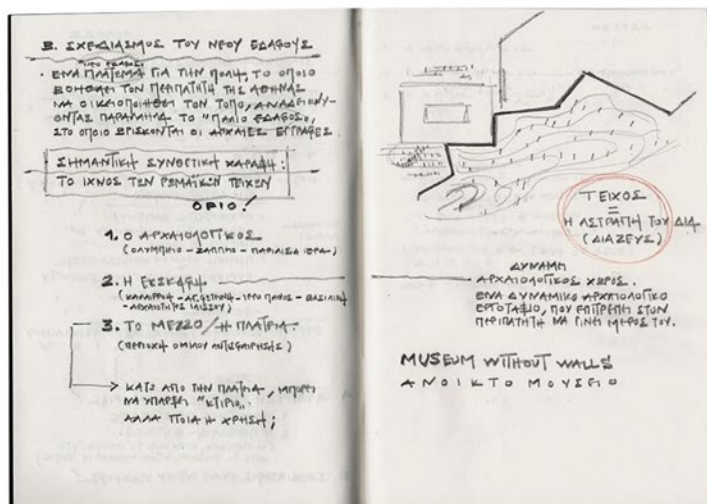 Β. ΣΧΕΔΙΑΣΜΟΣ ΤΟΥ ΝΕΟΥ ΕΔΑΦΟΥΣ
"ΝΕΟ ΕΔΑΦΟΣ"
· ΕΝΑ ΠΛΑΤΩΜΑ ΓΙΑ ΤΗΝ ΠΟΛΗ, ΤΟ ΟΠΟΙΟ
ΒΟΗΘΑΕΙ ΤΟΝ ΠΕΡΙΠΑΤΗΤΗ ΤΗΣ ΑΘΗΝΑΣ
ΝΑ ΟΙΚΕΙΟΠΟΙΗΘΕΙ ΤΟΝ ΤΟΠΟ, ΑΝΑΔΕΙΚΝΥ-
ΟΝΤΑΣ ΠΑΡΑΛΛΗΛΑ ΤΟ "ΠΑΛΙΟ ΕΔΑΦΟΣ",
ΣΤΟ ΟΠΟΙΟ ΒΡΙΣΚΟΝΤΑΙ ΟΙ ΑΡΧΑΙΕΣ ΕΓΓΡΑΦΕΣ.
ΣΗΜΑΝΤΙΚΗ ΣΥΝΘΕΤΙΚΗ ΧΑΡΑΞΗ:
ΤΟ ΙΧΝΟΣ ΤΩΝ ΡΩΜΑΪΚΩΝ ΤΕΙΧΩΝ
ΟΡΙΟ!
1. Ο ΑΡΧΑΙΟΛΟΓΙΚΟΣ
(ΟΛΥΜΠΙΕΙΟ - ΖΑΠΠΕΙΟ - ΠΑΡΙΛΙΣΙΑ ΙΕΡΑ)
2. Η ΕΚΣΚΑΦΗ
(ΚΑΛΛΙΡΡΟΗ - - ΙΕΡΟ ΠΑΝΟΣ - ΒΑΣΙΛΙΚΗ
- ΑΡΧΑΙΟΤΗΤΕΣ ΙΛΙΣΣΟΥ)
3. ΤΟ ΜΕΖΖΟ / Η ΠΛΑΤΕΙΑ
(ΠΕΡΙΟΧΗ ΟΜΙΛΟΥ ΑΝΤΙΣΦΑΙΡΗΣΗΣ)
→ ΚΑΤΩ ΑΠΟ ΤΗΝ ΠΛΑΤΕΙΑ, ΜΠΟΡΕΙ
ΝΑ ΥΠΑΡΞΕΙ "ΚΤΙΡΙΟ".
ΑΛΛΑ ΠΟΙΑ Η ΧΡΗΣΗ;
ΤΕΙΧΟΣ
=
Η ΑΣΤΡΑΠΗ ΤΟΥ ΔΙΑ
(ΔΙΑΖΕΥΣ)
ΑΡΧΑΙΟΛΟΓΙΚΟΣ ΧΩΡΟΣ.
ΕΝΑ ΔΥΝΑΜΙΚΟ ΑΡΧΑΙΟΛΟΓΙΚΟ
ΕΡΓΟΤΑΞΙΟ, ΠΟΥ ΕΠΙΤΡΕΠΕΙ ΣΤΟΝ
ΠΕΡΙΠΑΤΗΤΗ ΝΑ ΓΙΝΕΙ ΜΕΡΟΣ ΤΟΥ.
MUSEUM WITHOUT WALLS
ΑΝΟΙΚΤΟ ΜΟΥΣΕΙΟ